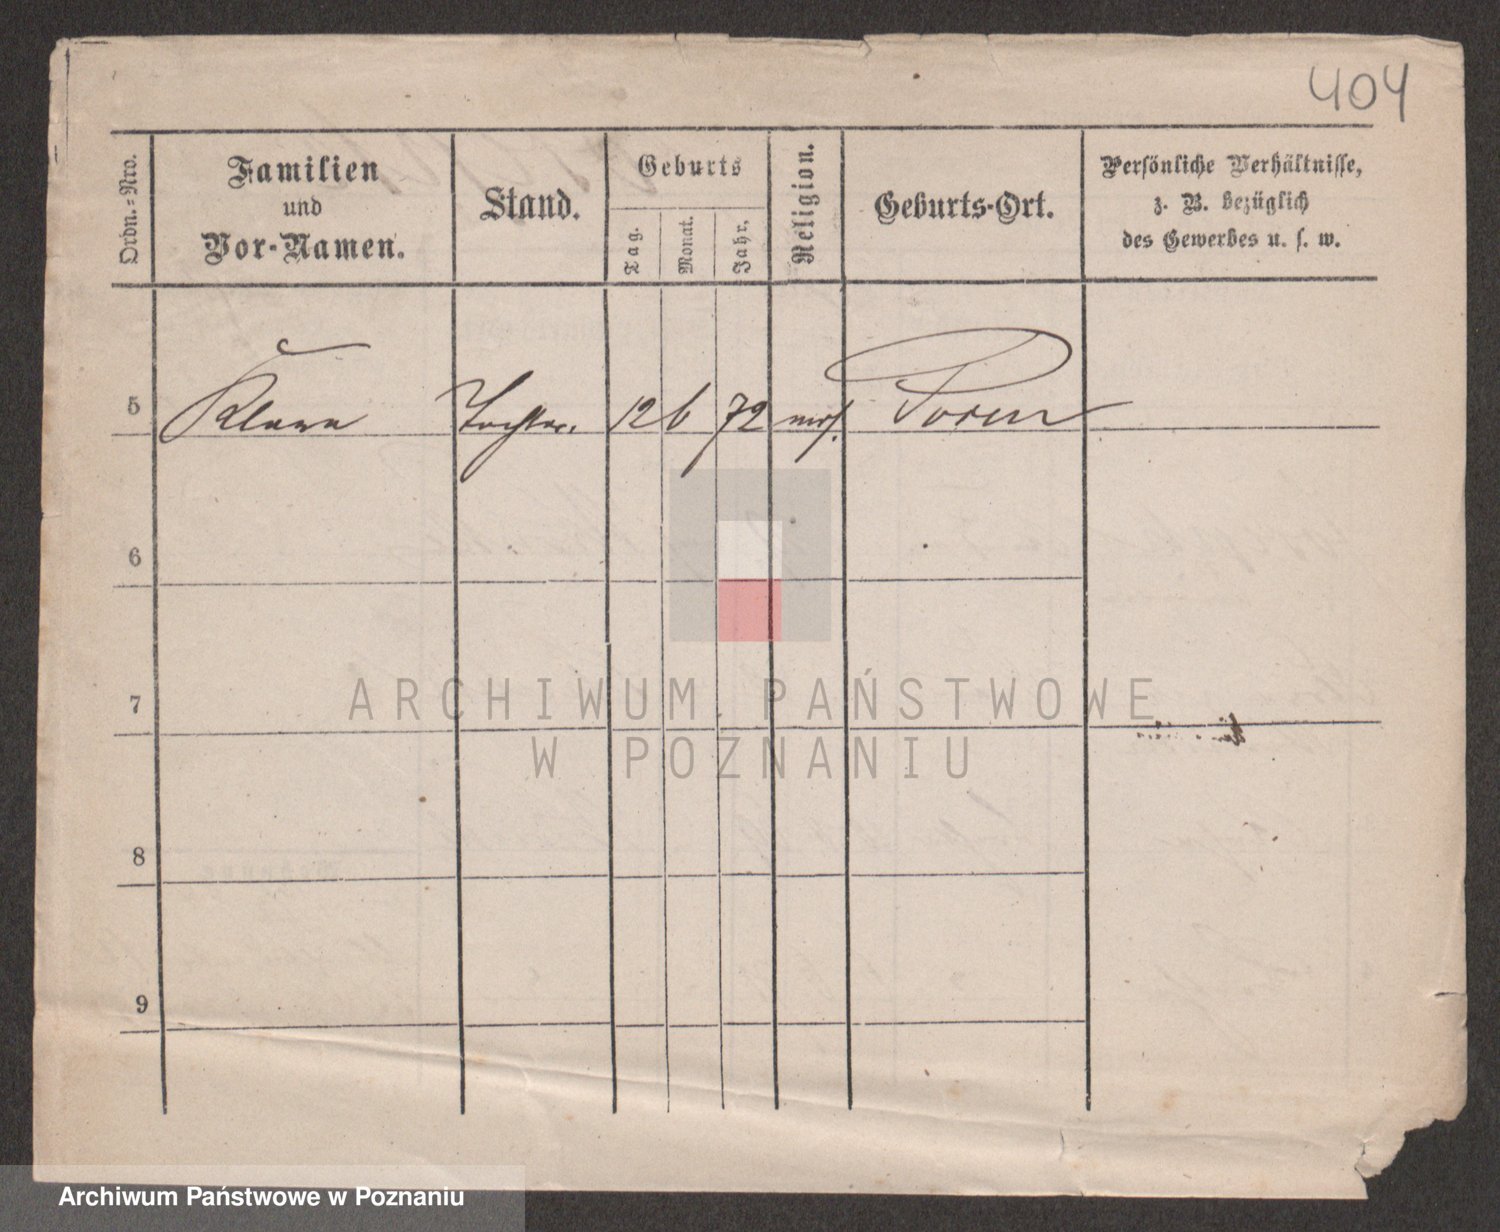 404
Ordn.-Nro.
Familien
und
Vor-Namen.
Stand.
Geburts
Tag.
Monat.
Jahr.
Religion.
Geburts-Ort.
Persönliche Verhältnisse,
z. B. bezüglich
des Gewerbes u. s. w.
5 Klara Tochter. 12 6 72 mos. Posen
6
7
8
9
ARCHIWUM PAŃSTWOWE
W POZNANIU
Archiwum Państwowe w Poznaniu